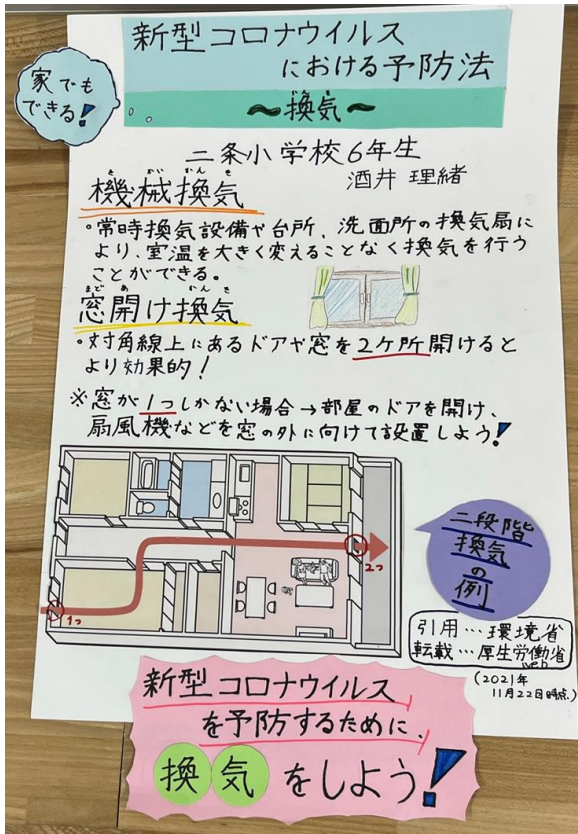 新型コロナウイルス
における予防法
〜換気〜
家でも
できる!
二条小学校6年生
酒井 理緒
きかいかんき
機械換気
・常時換気設備や台所、洗面所の換気扇に
より、室温を大きく変えることなく換気を行う
ことができる。
まどあ かんき
窓開け換気
・対角線上にあるドアや窓を2ケ所開けると
より効果的!
※窓が1つしかない場合→部屋のドアを開け、
扇風機などを窓の外に向けて設置しよう!
1つ
2つ
二段階
換気
の
例
引用…環境省
転載…厚生労働省
web
(2021年
11月22日時点)
新型コロナウイルス
を予防するために、
換気をしよう!